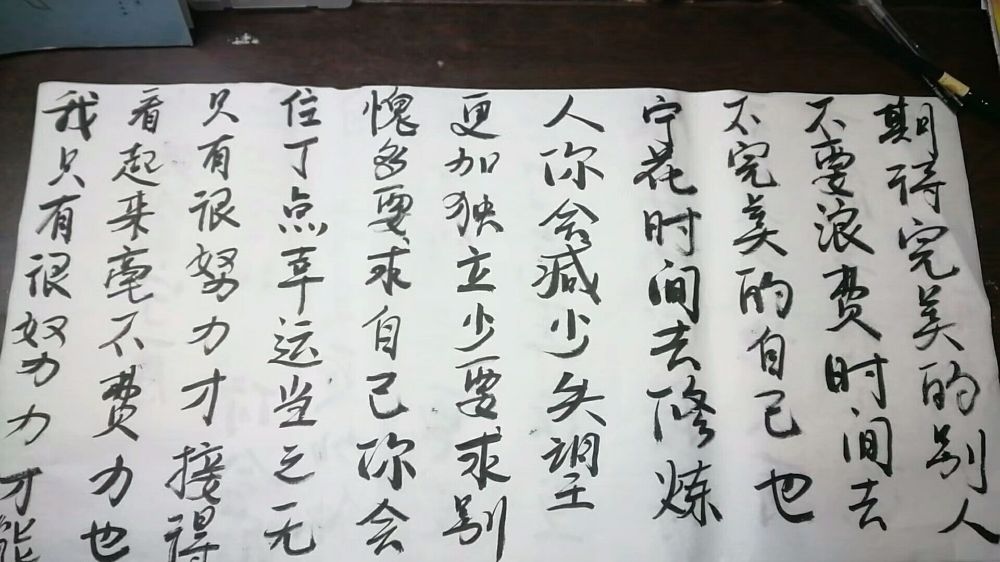 我只有很努力才能
看起来毫不费力也
只有很努力才接得
住丁点幸运当之无
愧多要求自己你会
更加独立少要求别
人你会减少失望
宁花时间去修炼
不完美的自己也
不要浪费时间去
期待完美的别人